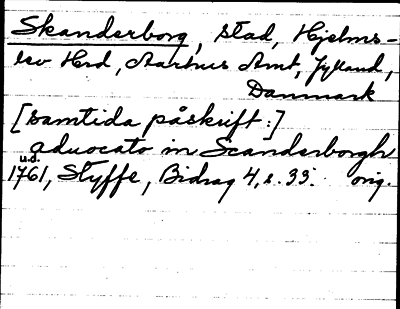 Skanderborg, stad, Hjelms-
lev Hrd, Aarhus Amt, Jylland,
Danmark
[samtida påskrift:]
aduocato in Scanderborgh
u.d.
1761, Styffe, Bidrag 4, s. 33. orig.